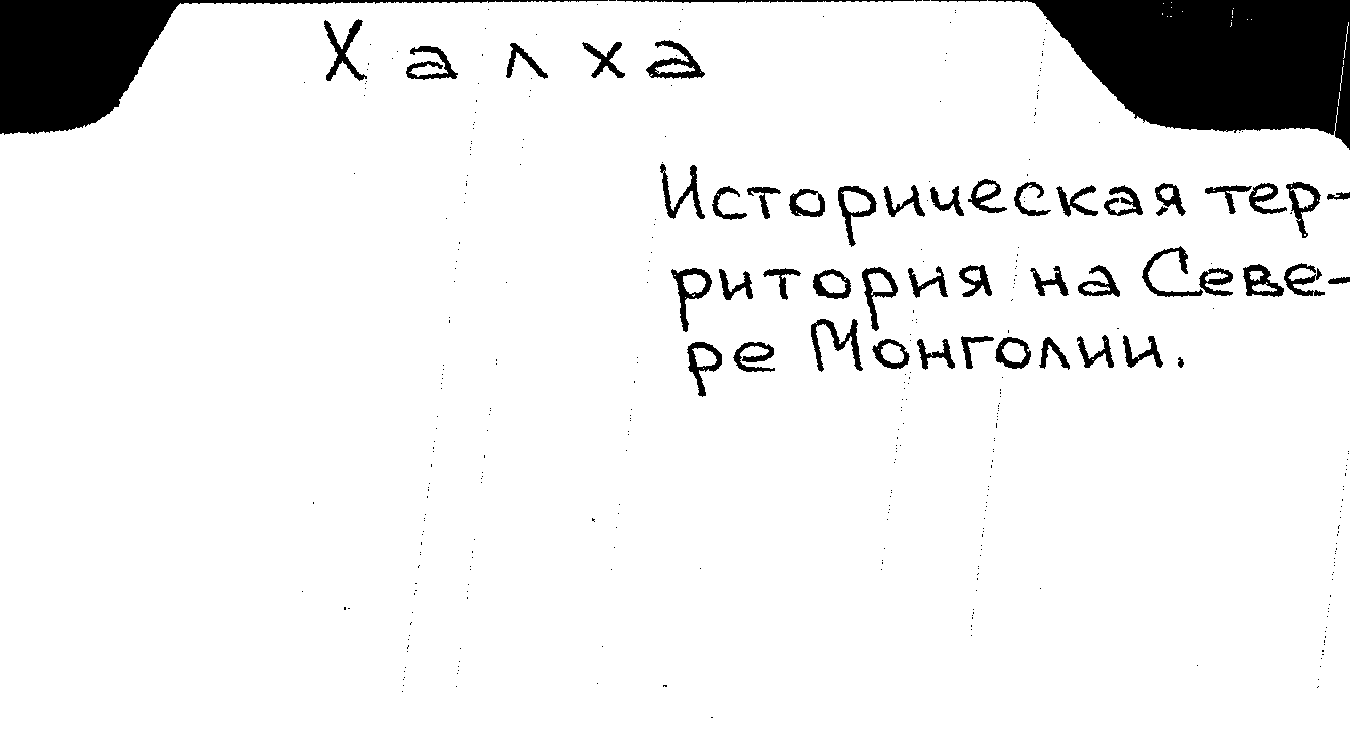 Халха
Историческая тер-
ритория на Севе-
ре Монголии.